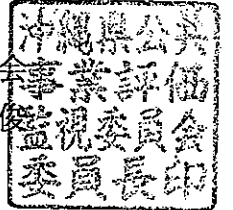 沖縄県公共
事業評価
監視委員会
委員長印
会
俊